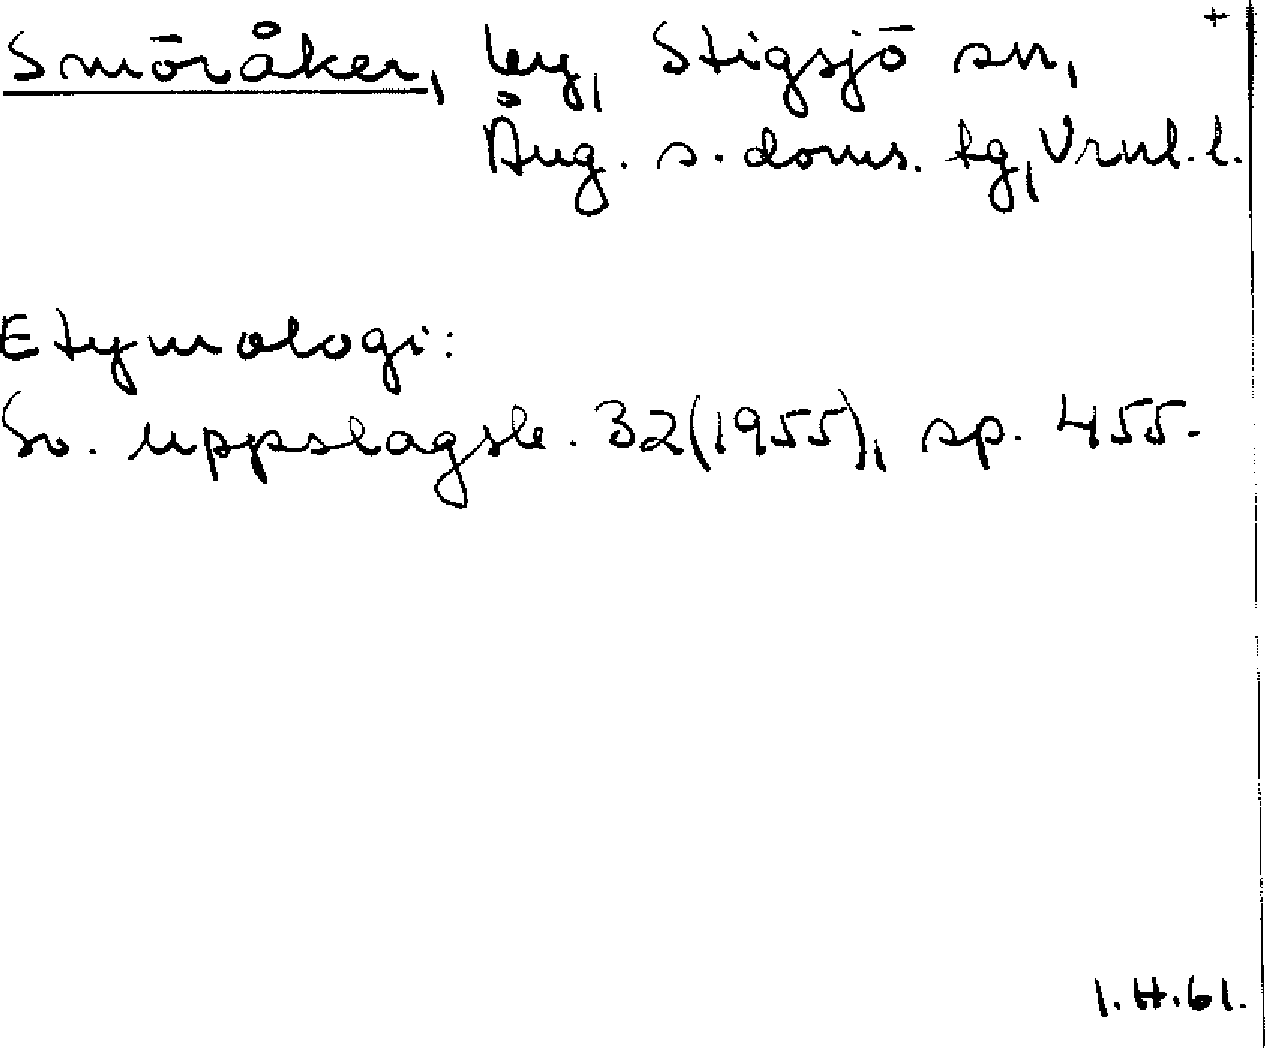 +
Smöråker, by, Stigsjö sn,
Ång. s. doms. tg, Vrnl. l.
Etymologi:
Sv. uppslagsb. 32(1955), sp. 455.
I.H.61.